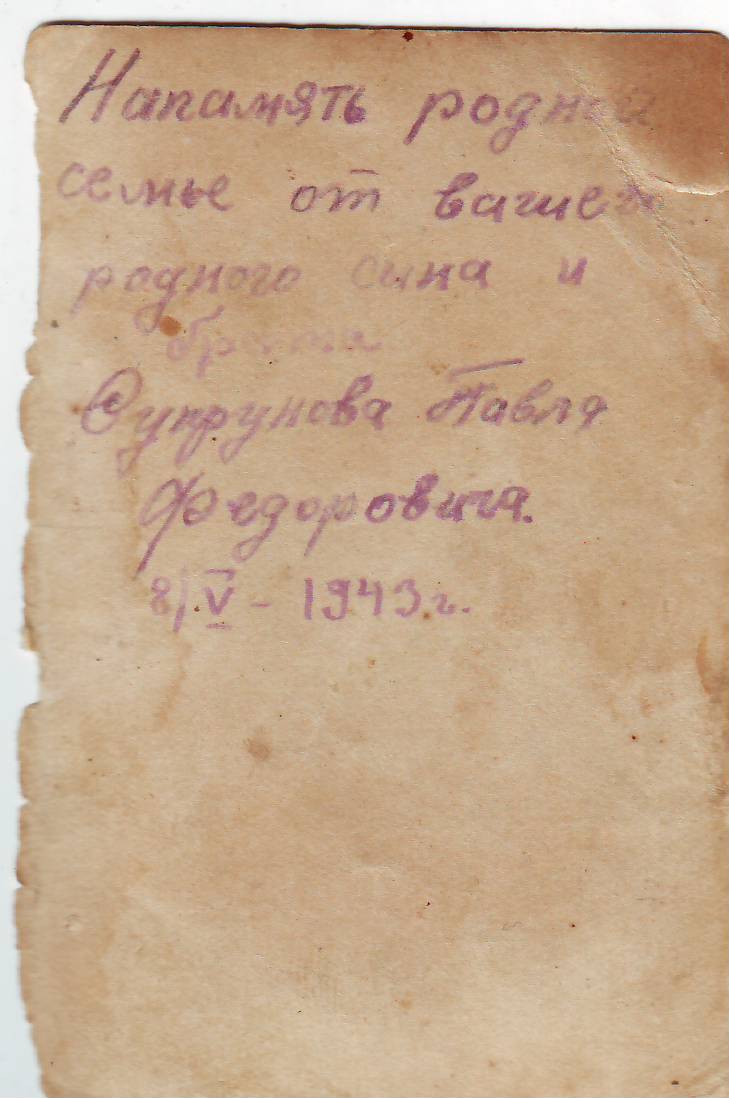 Напамять родной
семье от вашего
родного сына и
брата
Супрунова Павла
Федоровича.
8/V - 1943 г.